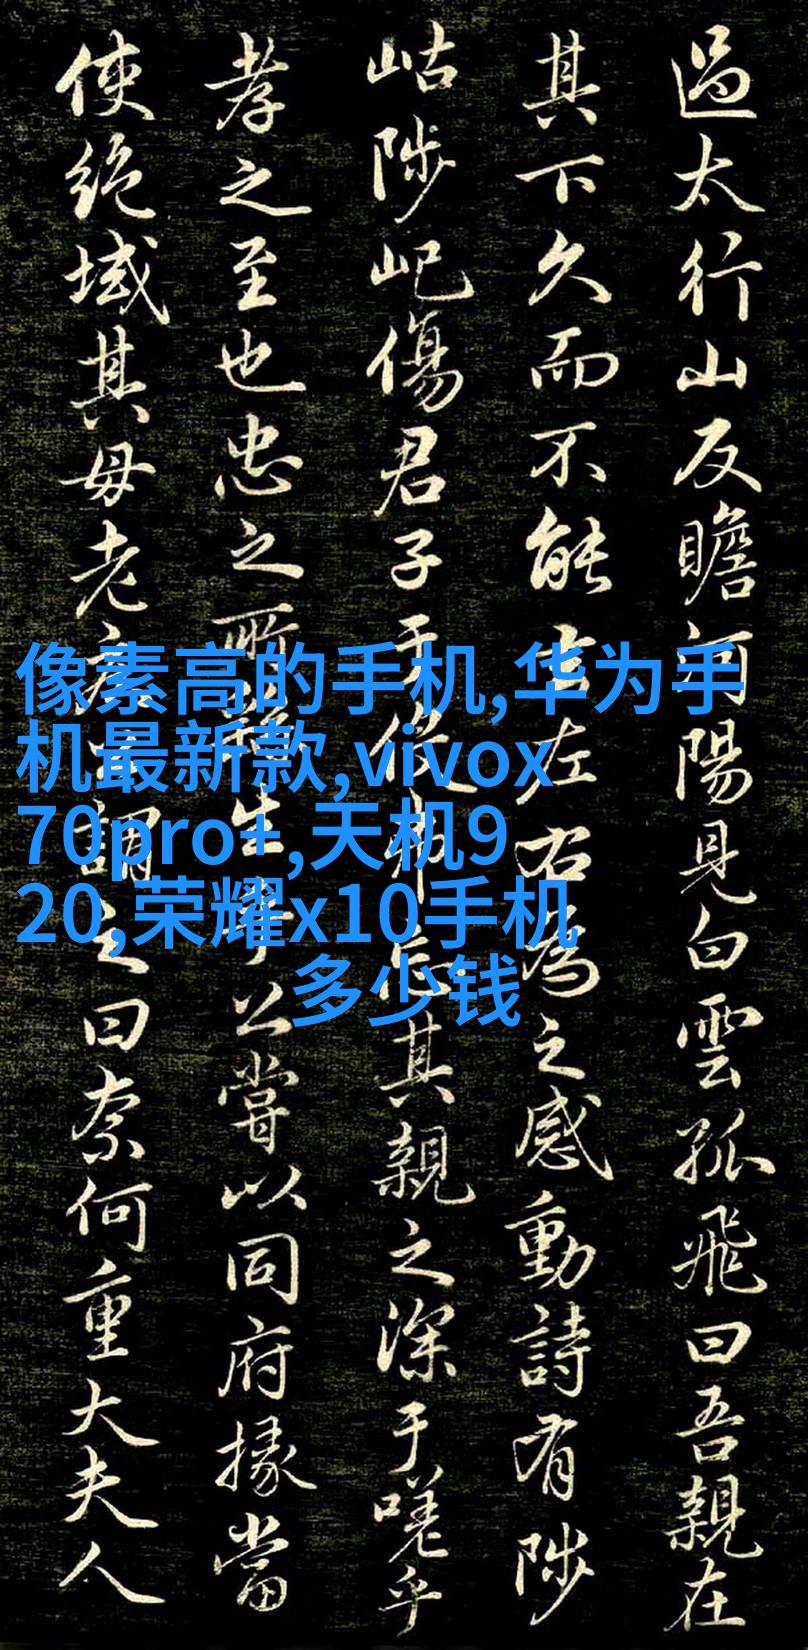 過太行山反瞻河陽見白雲孤飛曰吾親在
其下久而不能去左右為之感動詩有陟
岵陟屺傷君子于役弗忘其親之深于嗟乎
孝之至也忠之所繇生乎公嘗以同府掾當
使絕域其母老疾公謂之曰奈何重大夫人
像素高的手机,华为手
机最新款,vivox
70pro+,天机9
20,荣耀x10手机
多少钱